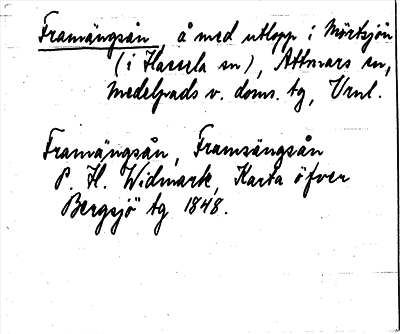 Framängsån å med utlopp i Mörtsjön
(i Hassela sn), Attmars sn,
Medelpads v. doms. tg, Vrnl.
Framängsån, Framsängsån
P. H. Widmark, Karta öfver
Bergsjö tg 1848.